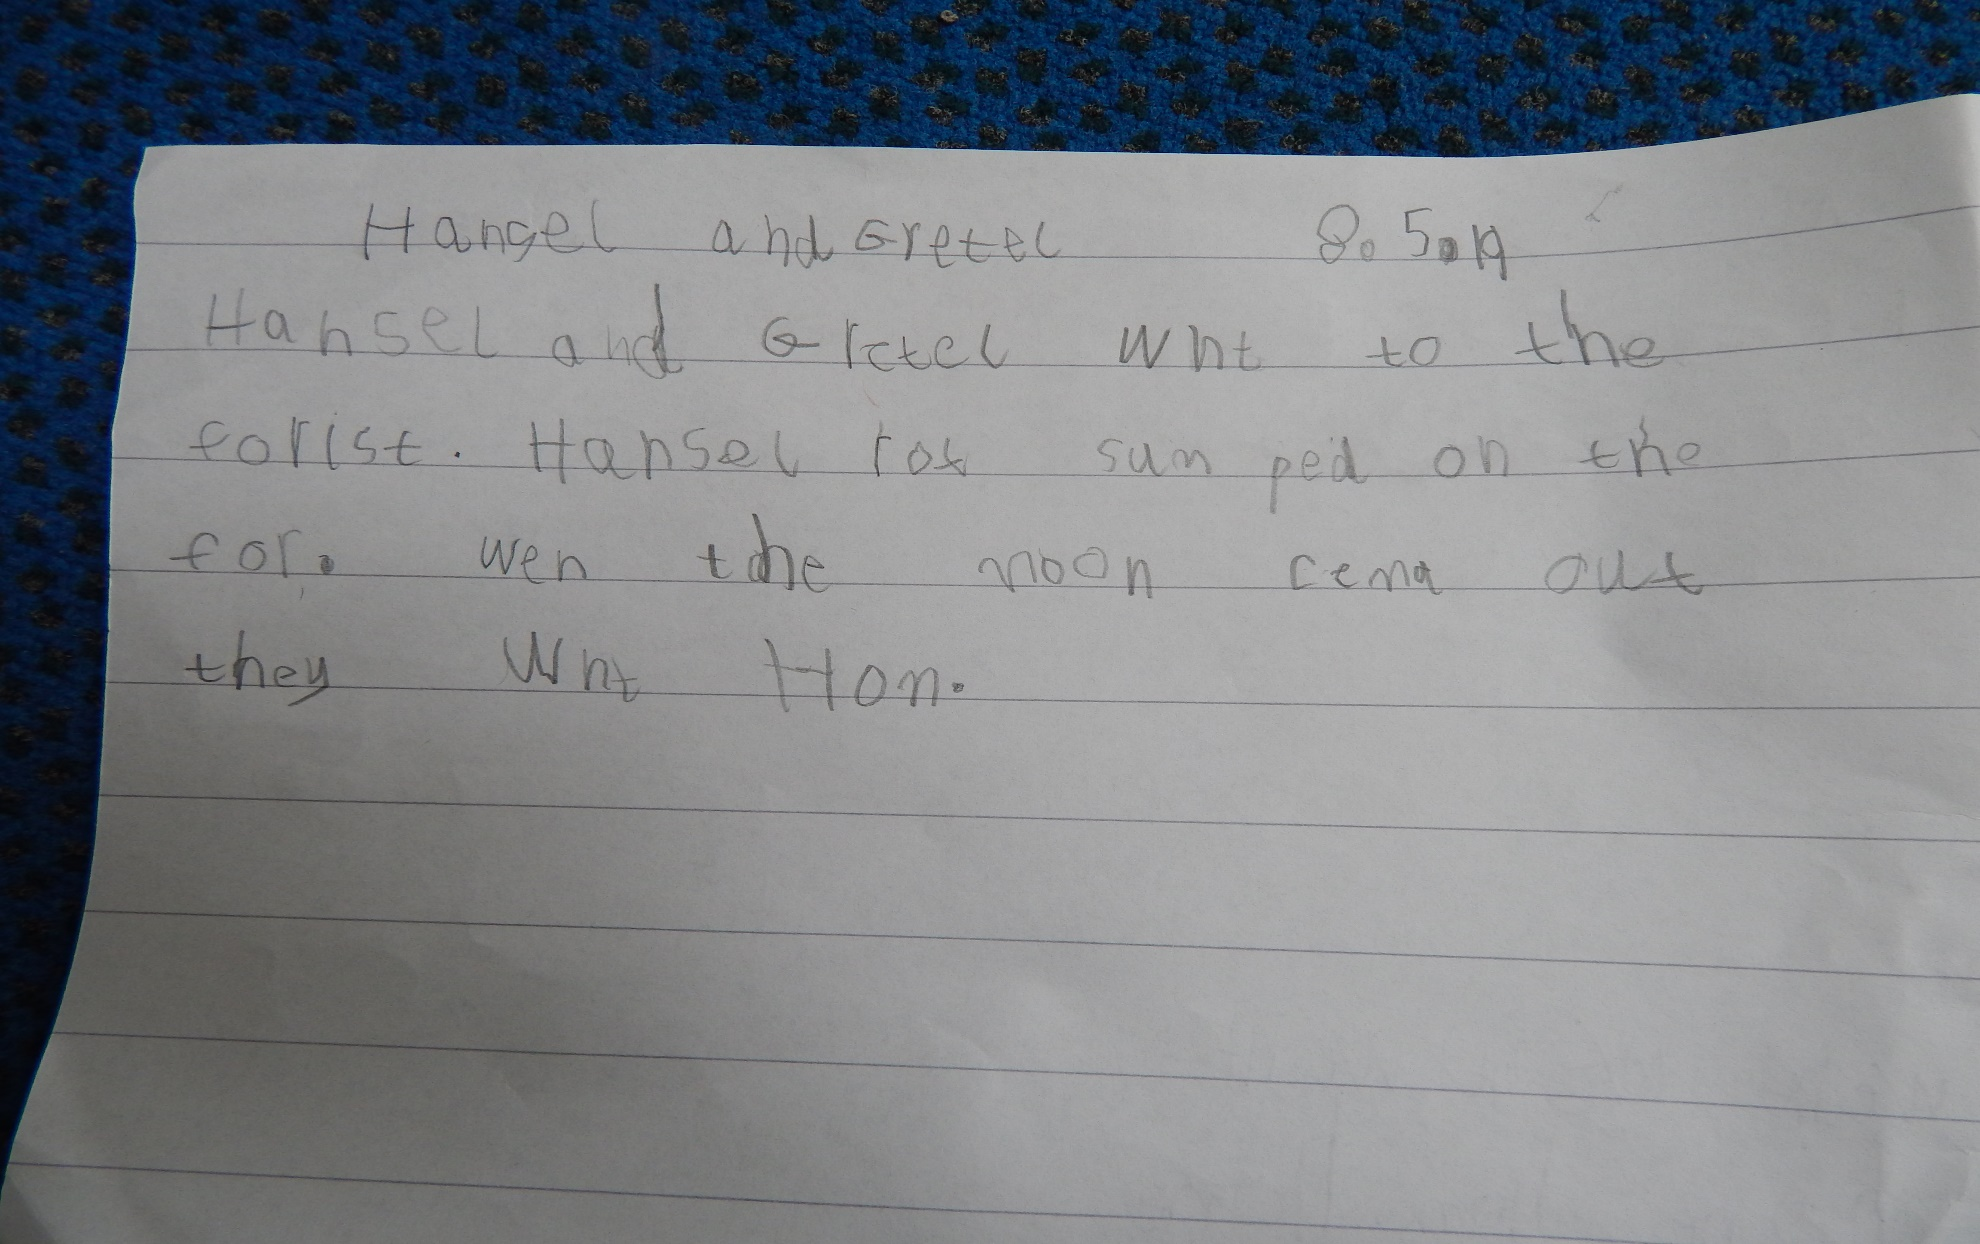 Hansel and Gretel 8.5.19
Hansel and Gretel Wnt to the
forist. Hansel rot sum ped on the
for. wen the moon cema out
they Wnt Hom.